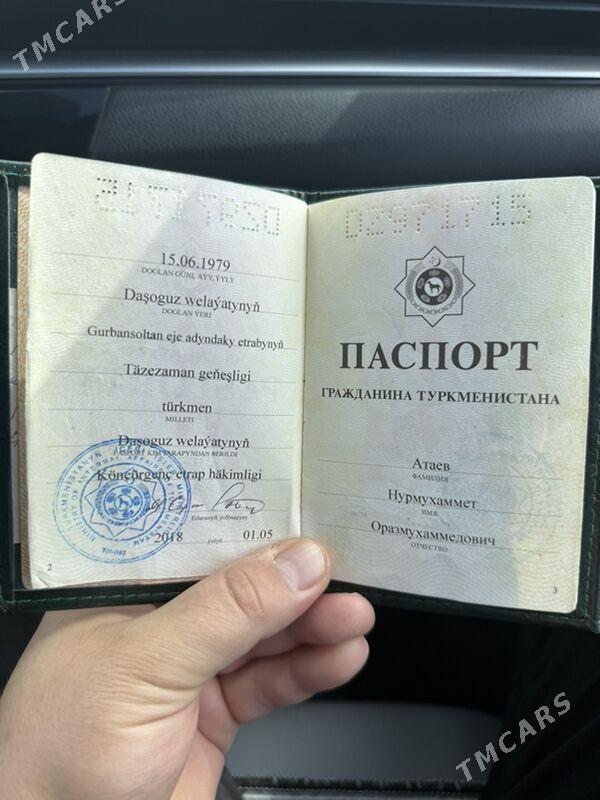 TMCARS
15.06.1979
DOGLAN GÜNI, AÝY, ÝYLY
Daşoguz welaýatynyň
DOGLAN ÝERI
Gurbansoltan eje adyndaky etrabynyň
Täzezaman geňeşligi
türkmen
MILLETI
Daşoguz welaýatynyň
PASPORT KIM TARAPYNDAN BERILDI
Köneürgenç etrap häkimligi
Edaranyň ýolbaşçysy
2018 ýylyň 01.05
2
02971715
ПАСПОРТ
ГРАЖДАНИНА ТУРКМЕНИСТАНА
Атаев
ФАМИЛИЯ
Нурмухаммет
ИМЯ
Оразмухаммедович
ОТЧЕСТВО
3
TMCARS